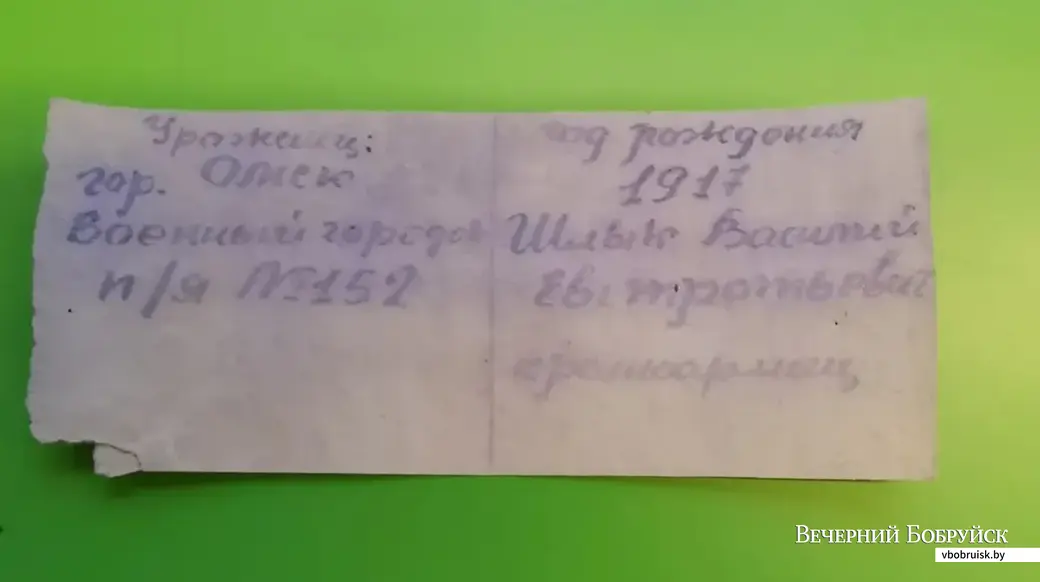 Уроженец:
гор. Омск
Военный городок
п/я №152
год рождения
1917
Шлык Василий
красноармеец
ВЕЧЕРНИЙ БОБРУЙСК
vbobruisk.by